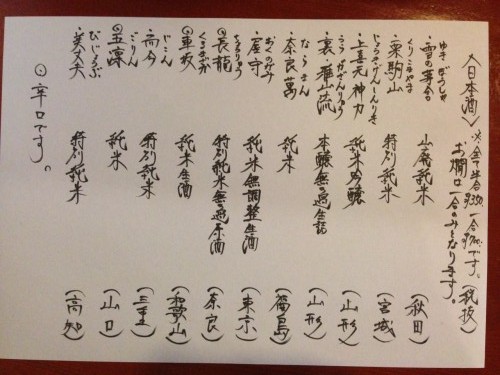 〈日本酒〉※全て半合¥350 一合¥700です。(税抜)
お燗は一合のみとなります。
ゆきのぼうしゃ
・雪の茅舎 山廃純米 (秋田)
くりこまやま
・栗駒山 特別純米 (宮城)
じょうきげんしんりき
・上喜元神力 純米吟醸 (山形)
うらがざんりゅう
・裏・雅山流 本醸無ろ過生詰 (山形)
ならまん
・奈良萬 純米 (福島)
おくのかみ
・屋守 純米無調整生酒 (東京)
ちょうりゅう
◎長龍 特別純米無ろ過原酒 (奈良)
くるまざか
◎車坂 純米生酒 (和歌山)
じこん
・而今 特別純米 (三重)
ごりん
◎五凛 純米 (山口)
びじょうぶ
・美丈夫 特別純米 (高知)
◎辛口です。